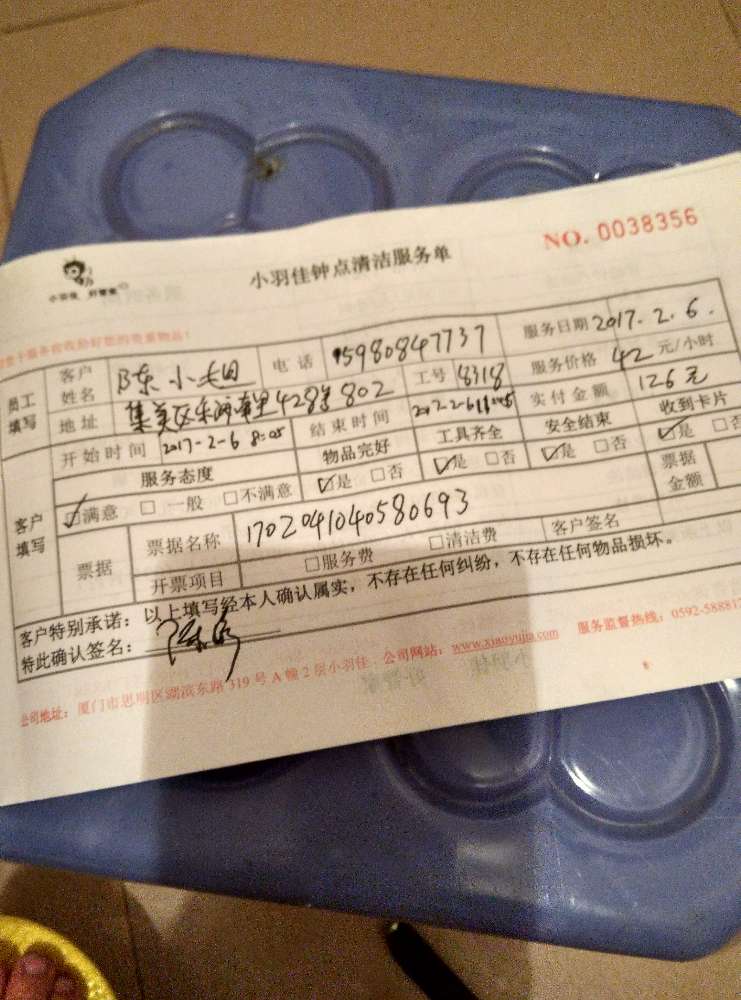 NO. 0038356
小羽佳 好管家
小羽佳钟点清洁服务单
员工填写
客户姓名 陈小姐 电话 15980847737 服务日期 2017.2.6.
地址 集美区乐海 里428号802 工号 8318 服务价格 42 元/小时
开始时间 2017-2-6 8:05 结束时间 2017-2-6 11:05 实付金额 126元
客户填写
服务态度 物品完好 工具齐全 安全结束 收到卡片
☑满意 □一般 □不满意 ☑是 □否 ☑是 □否 ☑是 □否 ☑是 □否
票据 票据名称 1702041040580693 票据金额
开票项目 □服务费 □清洁费 客户签名
客户特别承诺:以上填写经本人确认属实,不存在任何纠纷,不存在任何物品损坏。
特此确认签名:
公司地址:厦门市思明区湖滨东路319号A幢2层小羽佳 公司网站:www.xiaoyujia.com 服务监督热线:0592-588817